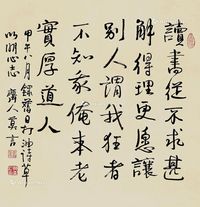 讀書從不求甚
解得理更應讓
別人謂我狂者
不知我俺本老
實厚道人
甲午八月錄舊日打油詩草
以明心志 齊人莫言